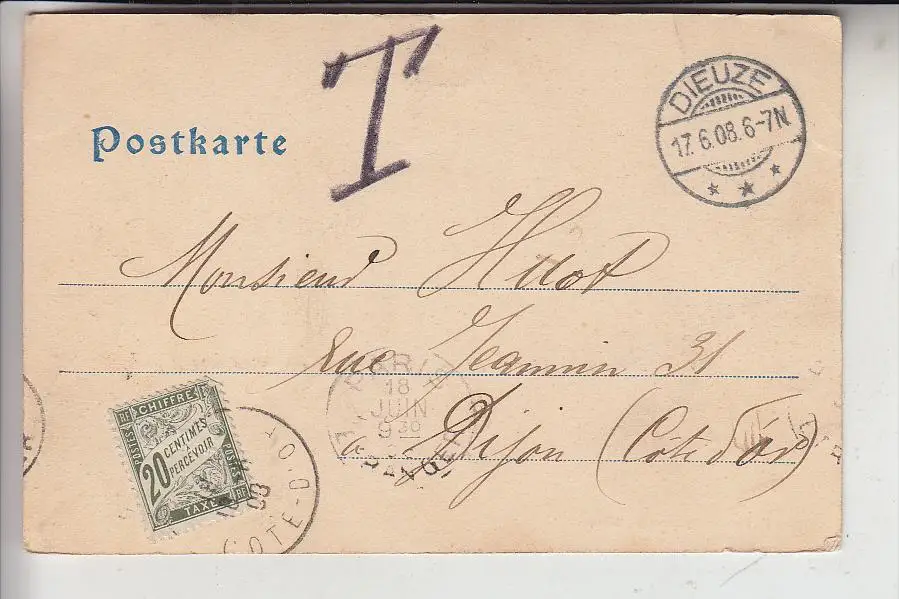 T
DIEUZE
17.6.08.6-7N
Postkarte
Monsieur Huot
Rue Jeannin 31
à Dijon (Côte d'or)
PARIS
18
JUIN
9 30
ETRANGER
CHIFFRE
20 CENTIMES
A PERCEVOIR
TAXE
POSTES
RF
COTE-D'O
08